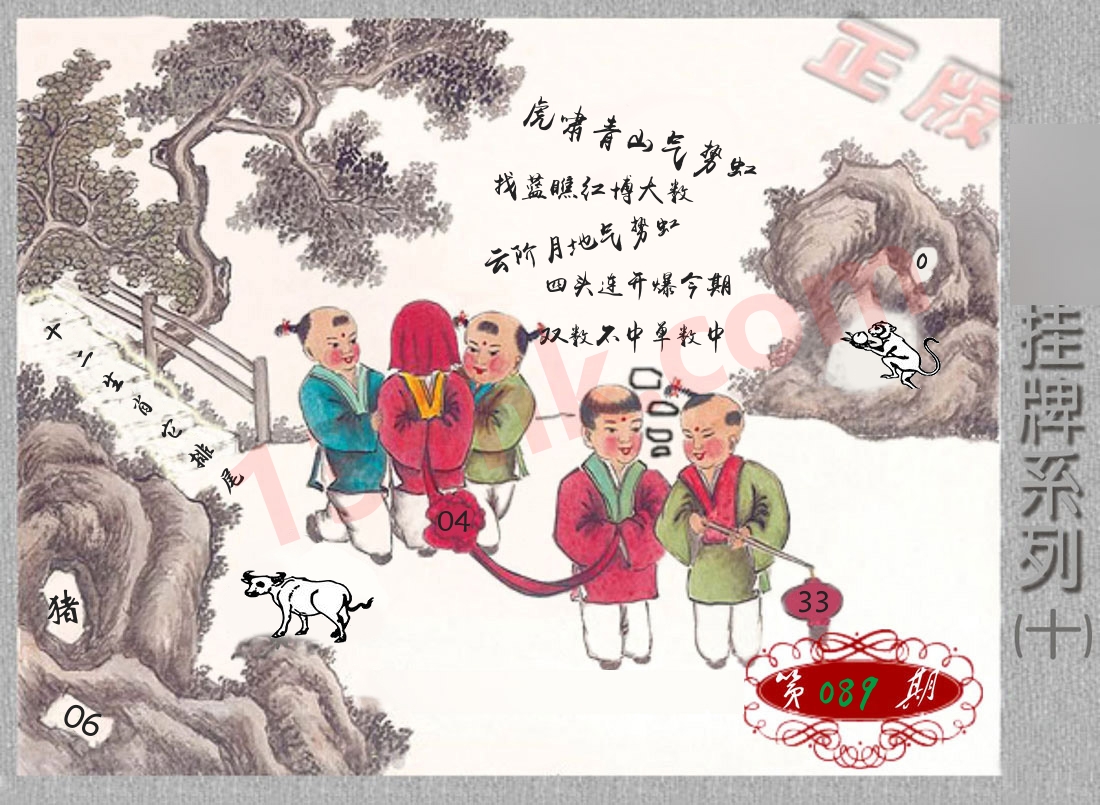 正版
虎啸青山气势虹
找蓝瞧红博大数
云阶月地气势虹
四头连开爆今期
双数不中单数中
0
十二生肖它排尾
04
33
猪
06
第089期
挂牌系列(十)